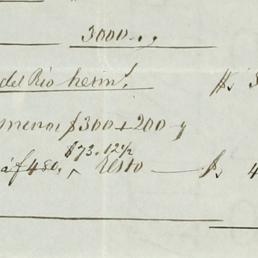 3000 „
del Rio herm.ˢ $s 3
menos $300 + 200 y
$73.12½
á $480. ^ Resto — $s 4